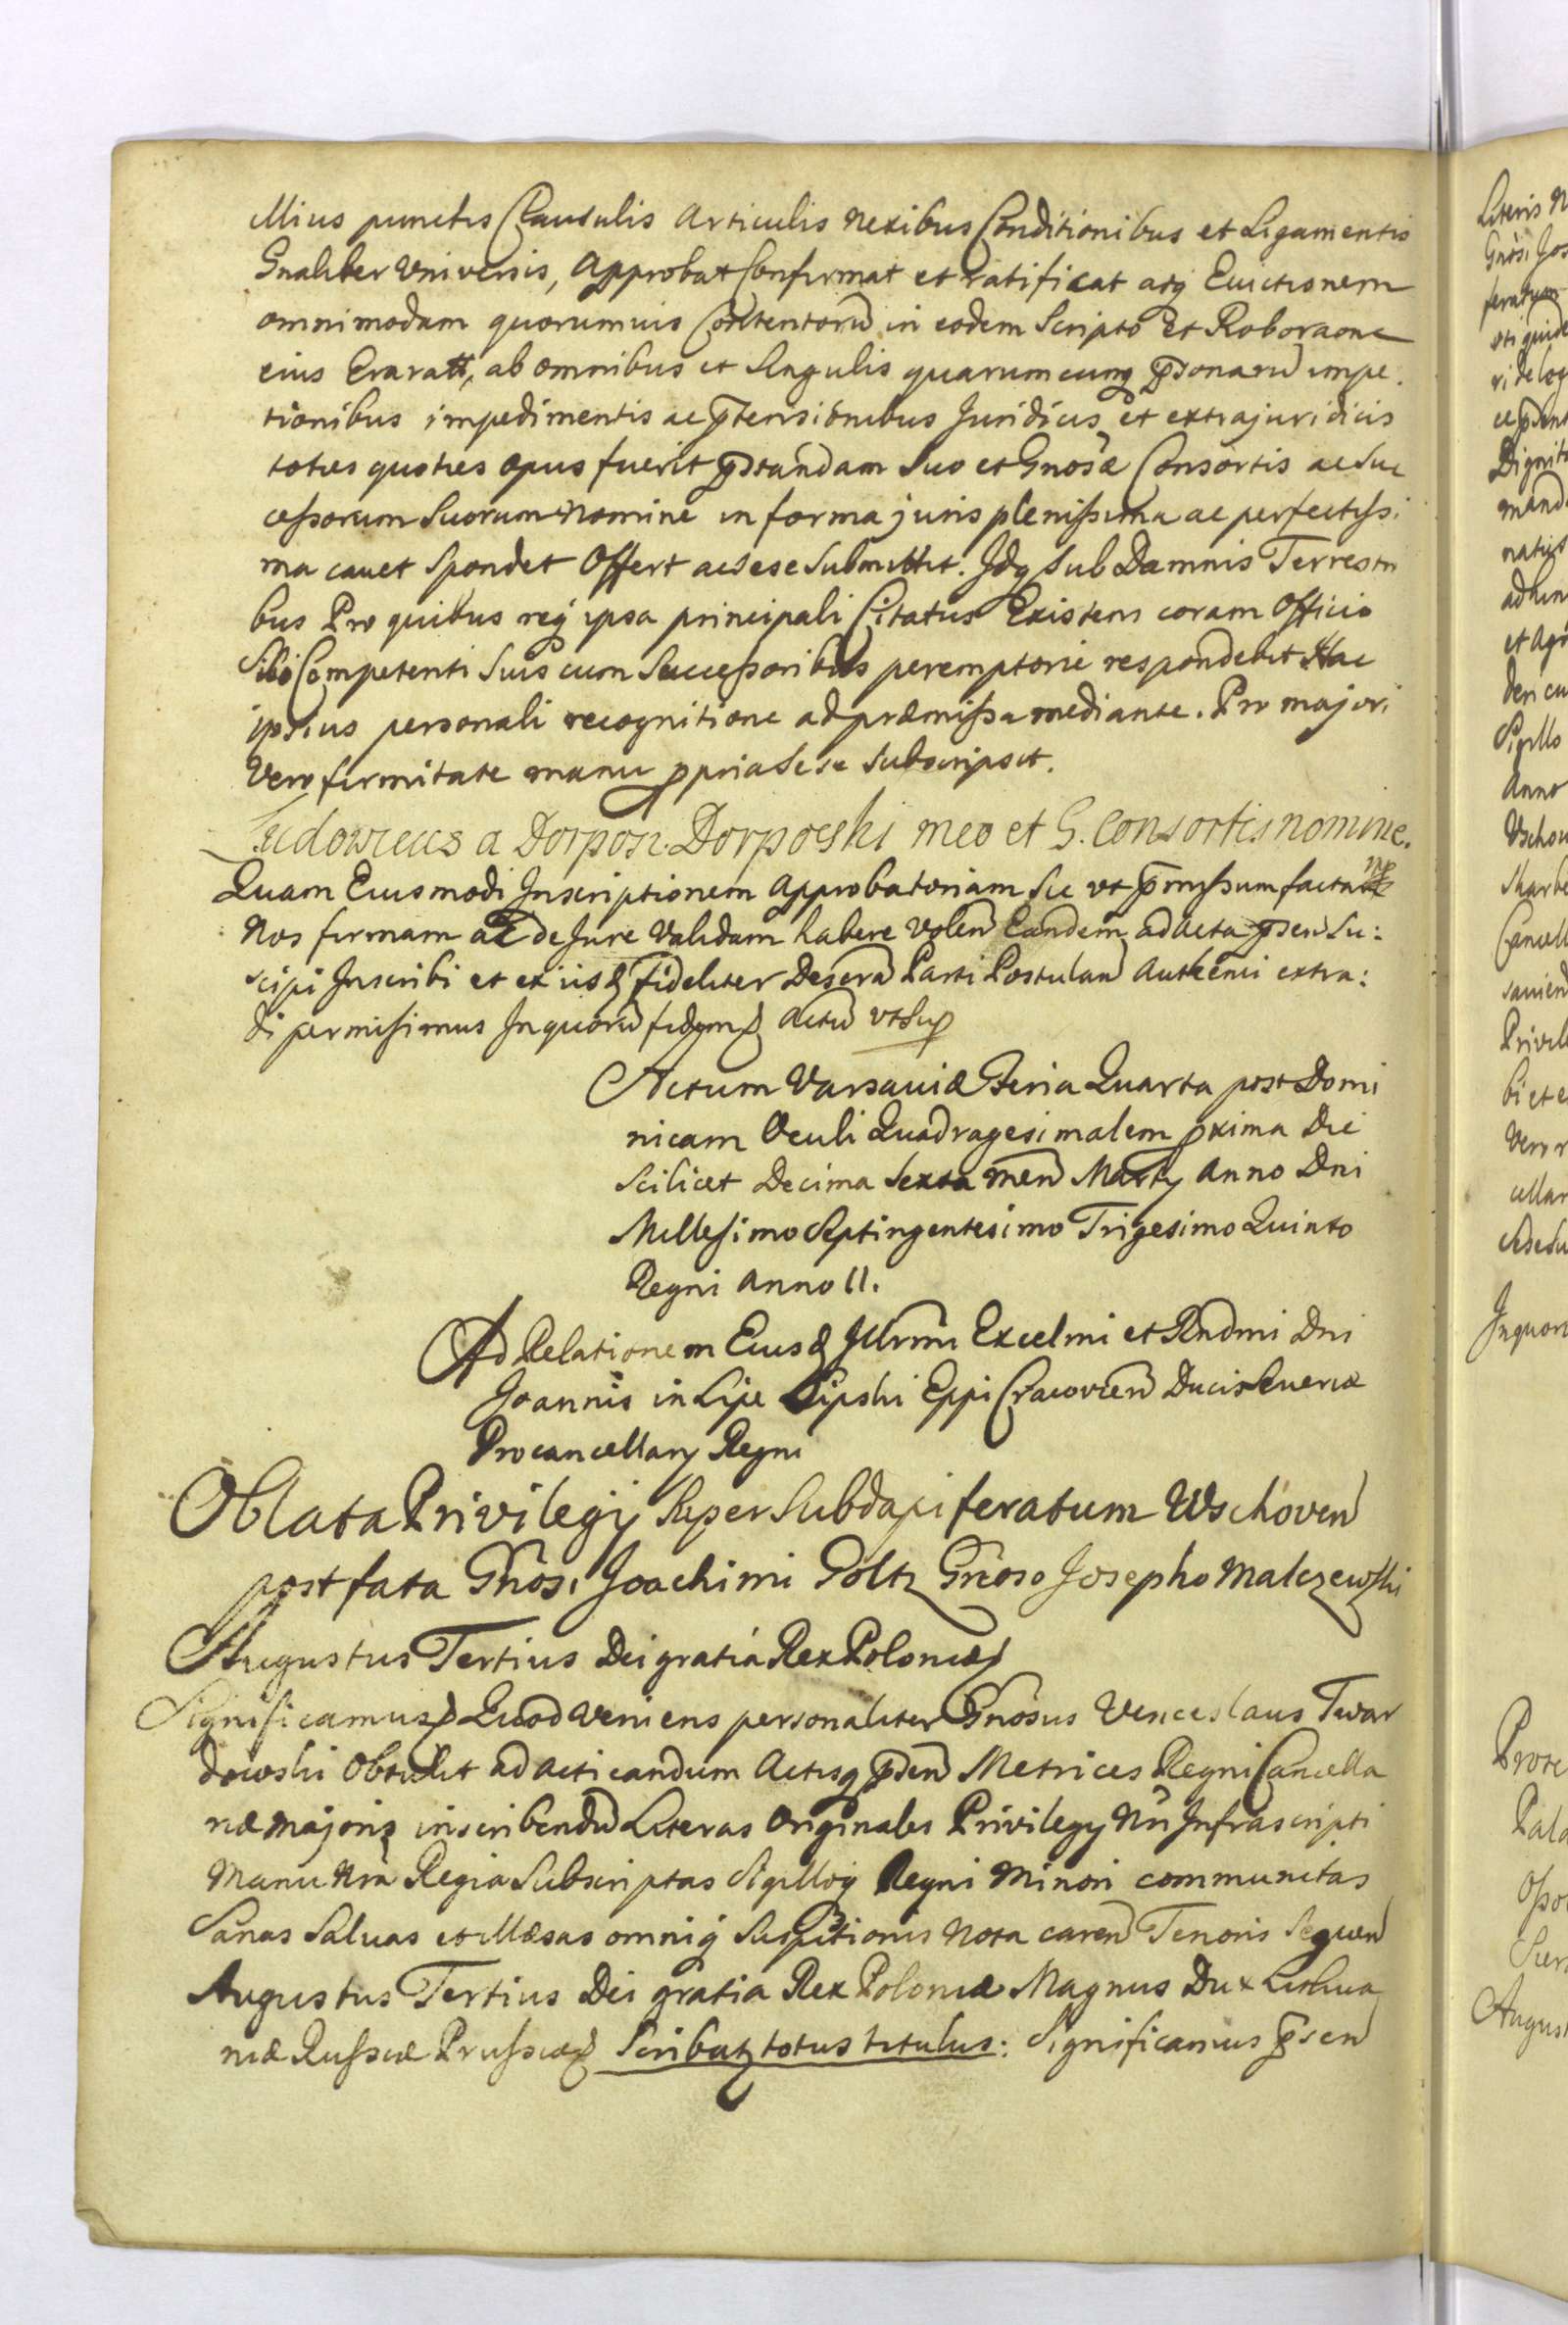 Illius punctis Clausulis Articulis Nexibus Conditionibus et Ligamentis
Gnaliter Universis, Approbat Confirmat et ratificat atq Euictionem
omnimodam quorumuis Contentorũ in eodem Scripto et Roboraone
eius ab omnibus et Singulis quarumcunq psonarũ impe.
tionibus impedimentis ac ptensionibus Juridicis et extrajuridicis
toties quoties opus fuerit pstandam Suo et Gnosæ Consortis ac Suc
cessorum Suorum Nomine in forma juris plenissima ac perfectissi.
ma cauet Spondet Offert ac sese Submittit. Idq Sub Damnis Terrestri
bus Pro quibus req ipsa principali Citatus Existens coram Officio
Sibi Competenti Suis cum Successoribus peremptorie respondebit Hac
ipsius personali recognitione ad præmissa mediante. Pro majori
Vero firmitate manu ppria sese subscripsit.
Ludowicus a Dorposz Dorpowski meo et G. Consortis nomine.
Quam Eiusmodi Inscriptionem Approbatoriam Sic ut pmissum factam
Nos firmam ac de Jure Validam habere Volen Eandem ad Acta psen Su:
scipi Inscribi et ex iisd fideliter Descra Parti Postulan Authenti extra:
di permisimus In quorũ fidem Actũ ut Sup
Actum Varsauiæ Feria Quarta post Domi
nicam Oculi Quadragesimalem pxima Die
Scilicet Decima Sexta men Martij Anno Dni
Millesimo Septingentesimo Trigesimo Quinto
Regni Anno II.
Ad Relationem Eiusd Illrmi Excelmi et Rndmi Dni
Joannis in Lipe Lipski Eppi Cracovien Ducis Seueriæ
Procancellarij Regni
Oblata Privilegij Super Subdapiferatum Wschoven
post fata Gnosi Joachimi Goltz Gneroso Josepho Malczewski
Augustus Tertius Dei gratia Rex Poloniæ
Significamus Quod Veniens personaliter Gnosus Venceslaus Twar
dowski Obtulit ad acticandum Actisq psen Metrices Regni Cancella
riæ Majoris inscribendũ Literas Originales Privilegij Nri Infrascripti
Manu Nra Regia Subscriptas Sigilloq Regni Minori communitas
Sanas Saluas et Illæsas omniq Suspitionis Nota caren Tenoris Sequen
Augustus Tertius Dei gratia Rex Poloniæ Magnus Dux Lithua
niæ Russiæ Prussiæ Scribatz totus titulus: Significamus psen